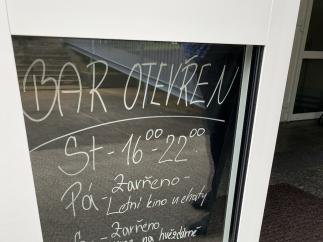 BAR OTEVŘEN
St - 16⁰⁰ - 22⁰⁰
Pá - Zavřeno -
- Letní kino u chaty
Zavřeno
na hvězdárně